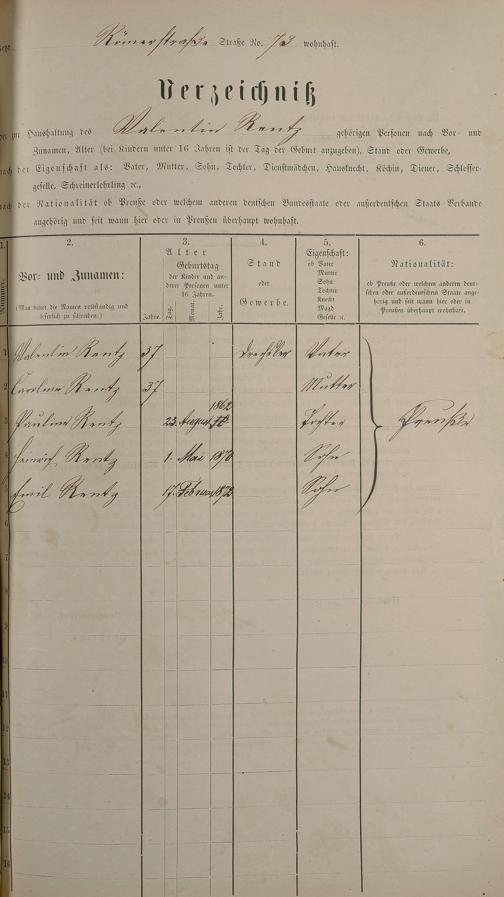 Römerstraße Straße No. 73 wohnhaft.
Verzeichniß
der zur Haushaltung des Valentin Rentz gehörigen Personen nach Vor- und
Zunamen, Alter (bei Kindern unter 16 Jahren ist der Tag der Geburt anzugeben), Stand oder Gewerbe,
nach der Eigenschaft als: Vater, Mutter, Sohn, Tochter, Dienstmädchen, Hausknecht, Köchin, Diener, Schlosser-
geselle, Schreinerlehrling ꝛc.,
nach der Nationalität ob Preuße oder welchem anderen deutschen Bundesstaate oder außerdeutschen Staats-Verbande
angehörig und seit wann hier oder in Preußen überhaupt wohnhaft.
1. 2. 3. 4. 5. 6.
Nummer.
Vor- und Zunamen:
(Man bittet die Namen vollständig und
leserlich zu schreiben.)
Alter
Geburtstag
der Kinder und an-
derer Personen unter
16 Jahren.
Jahre. Tag. Monat. Jahr.
Stand
oder
Gewerbe.
Eigenschaft:
ob Vater
Mutter
Sohn
Tochter
Knecht
Magd
Geselle ꝛc.
Nationalität:
ob Preuße oder welchem anderen deut-
schen oder außerdeutschen Staate ange-
hörig und seit wann hier oder in
Preußen überhaupt wohnhaft.
1 Valentin Rentz 37 Drechsler Vater
2 Carolina Rentz 37 Mutter
1862
3 Paulina Rentz 23. August Tochter Preuße
4 Heinrich Rentz 1. Mai 1870 Sohn
5 Emil Rentz 17. Februar 1872 Sohn
6
7
8
9
10
11
12
13
14
15
16